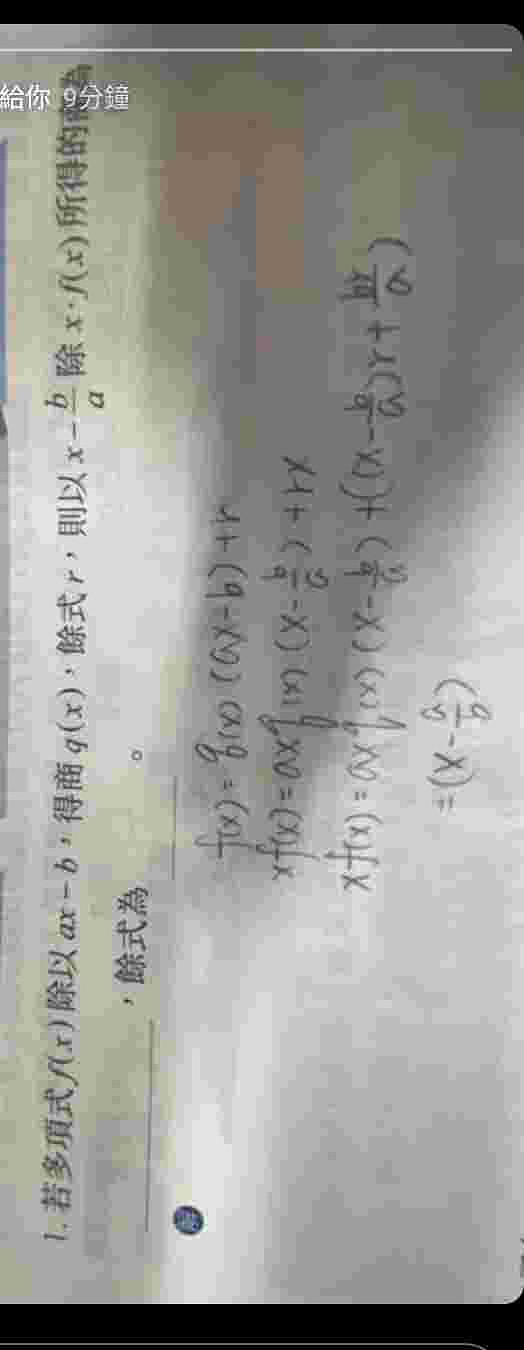 給你 9分鐘
1. 若多項式 f(x) 除以 ax-b，得商 q(x)，餘式 r，則以 x-\frac{b}{a} 除 x·f(x) 所得的商為
，餘式為 。
解
f(x) = q(x) (ax-b) + r
xf(x) = axq(x) (x-\frac{b}{a}) + rx
xf(x) = axq(x) (x-\frac{b}{a}) + (x-\frac{b}{a})r + (\frac{br}{a})
= (x-\frac{b}{a})